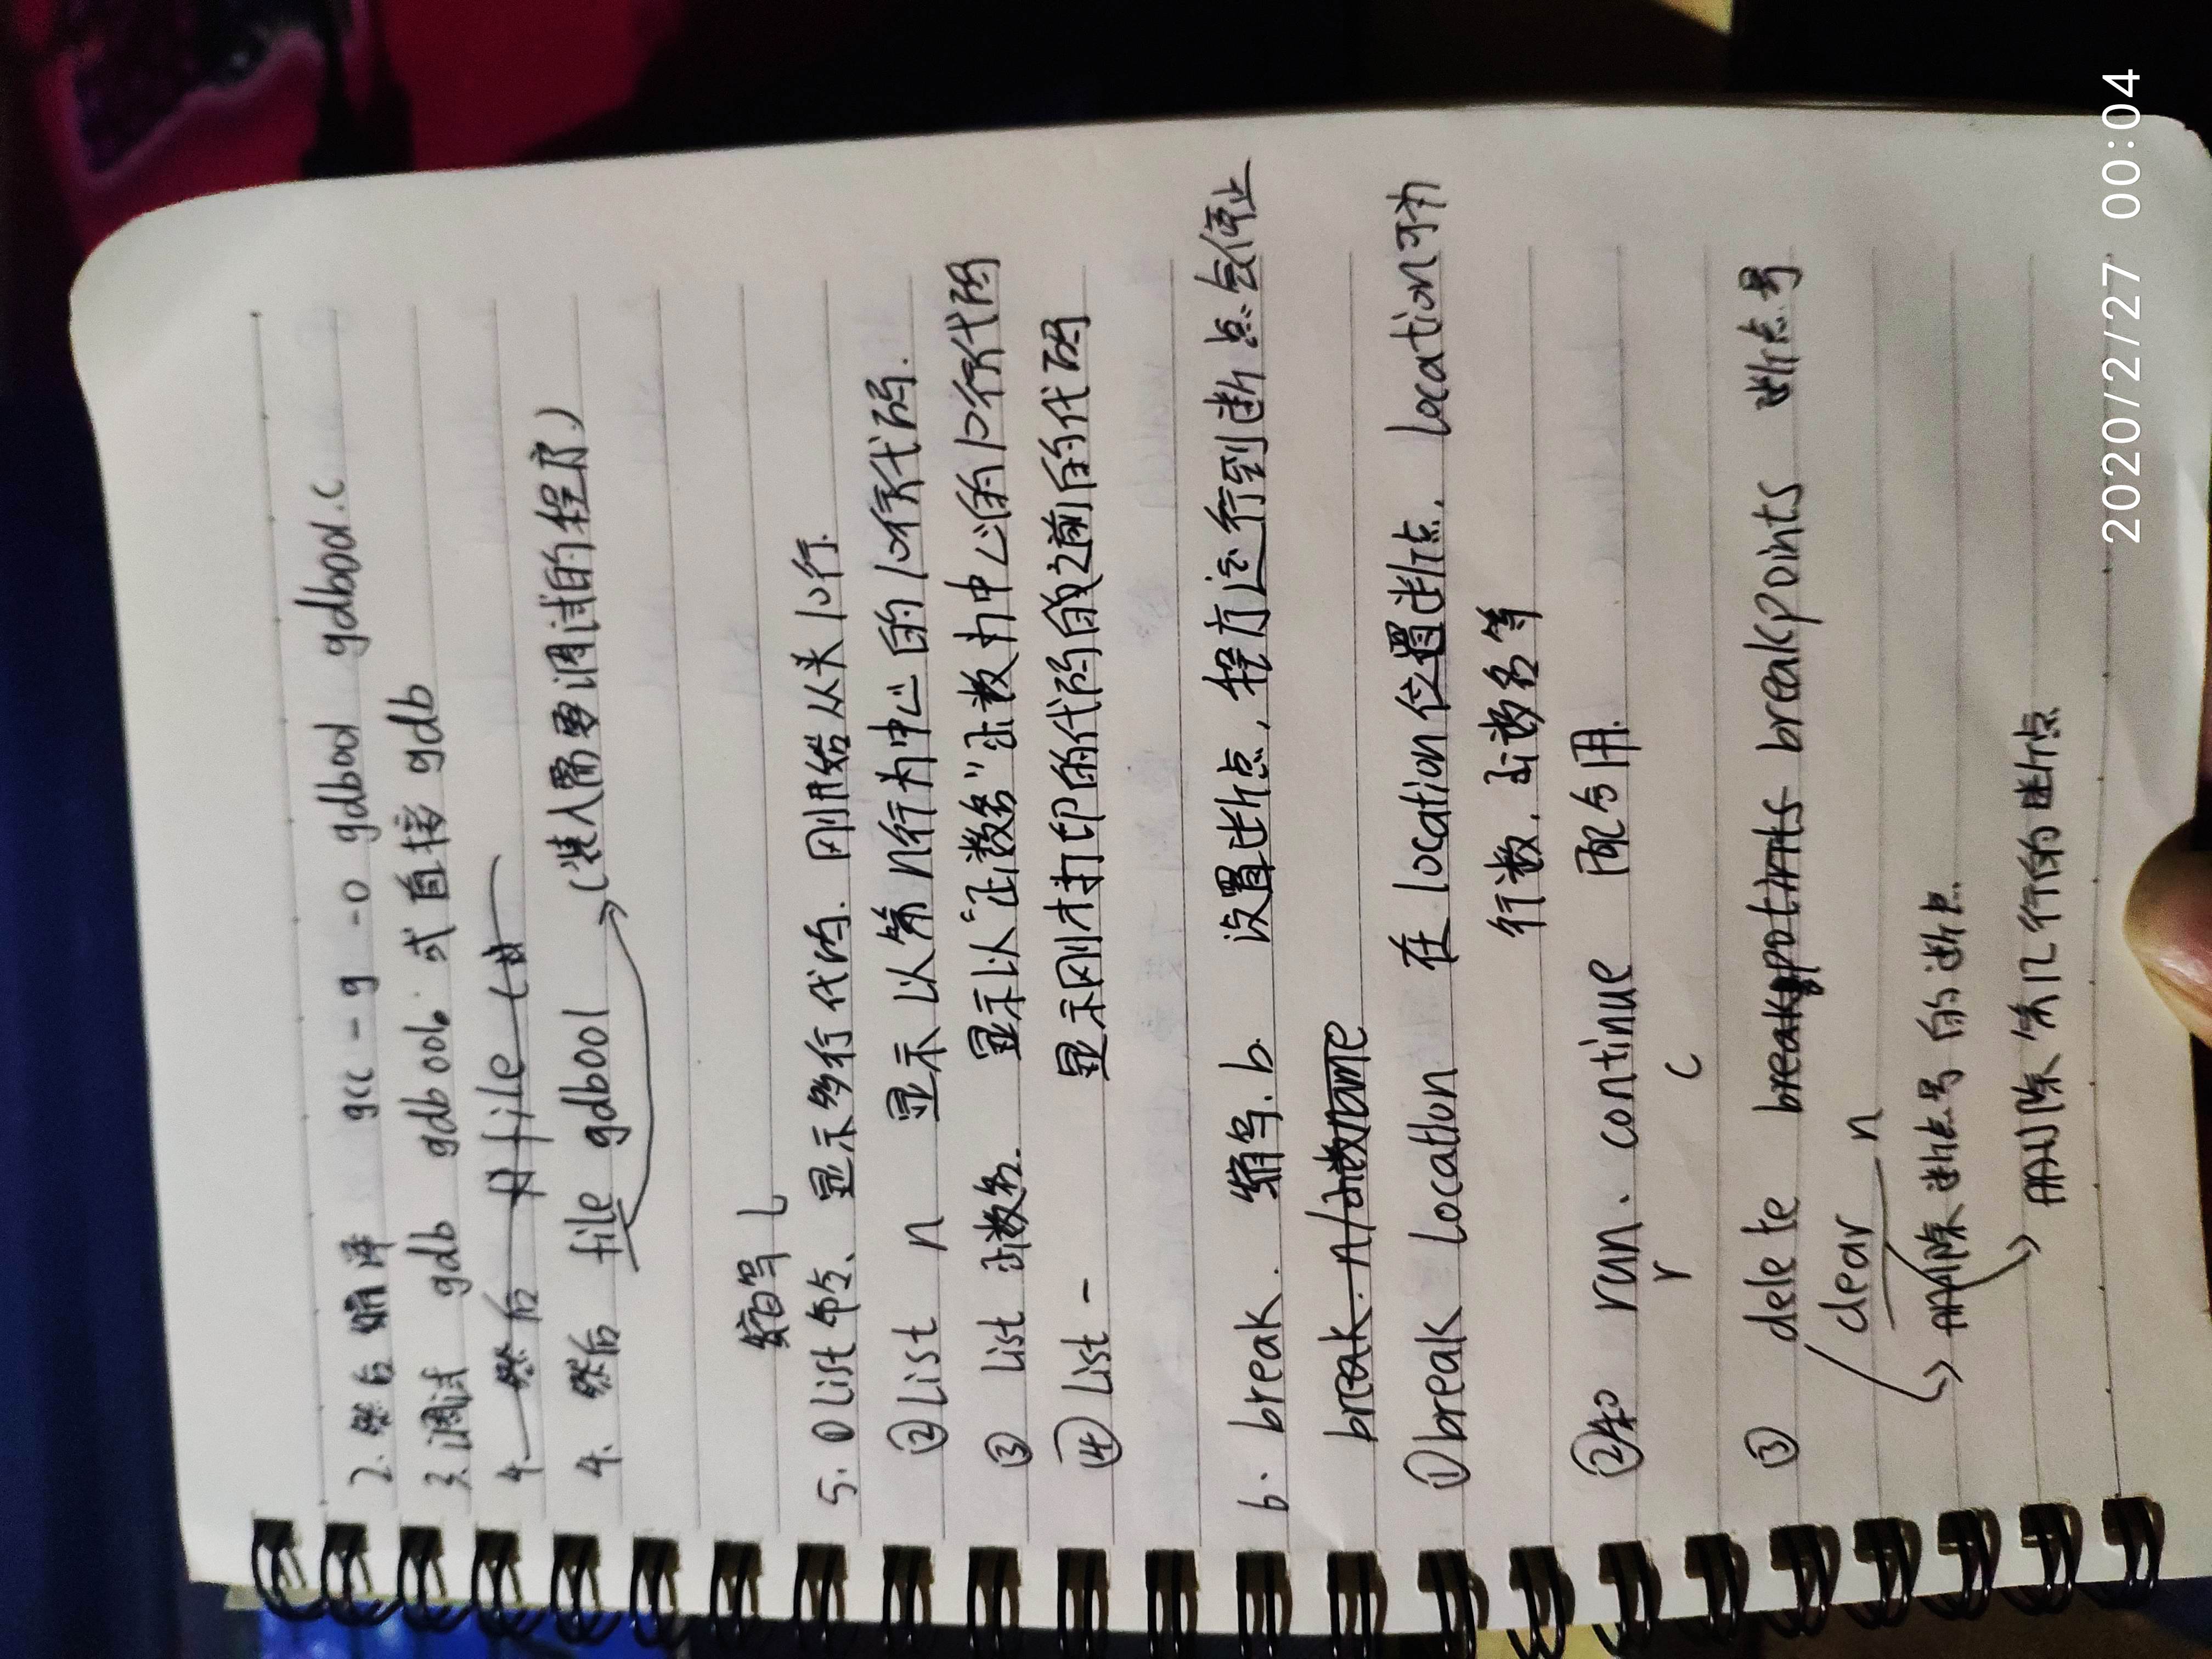 2. 然后 编译 gcc -g -o gdbool gdbool.c
3. 调试 gdb gdbool. 或直接 gdb
4. 然后 file
4. 然后 file gdbool (装入需要调试的程序)
缩写 l
5. ①list 命令、显示多行代码. 刚开始从头10行.
②list n 显示以第n行为中心的10行代码.
③ list 函数名. 显示以“函数名”函数为中心的10行代码
④ list - 显示刚才打印的代码的之前的代码
6. break. 缩写. b. 设置断点, 程序运行到断点会停止
break. n/函数name
①break location 在location位置断点. location可为
行数. 函数名等
②和 run. continue 配合用.
r c
③ delete breakpotints breakpoints 断点号
clear n
删除 断点号 的断点
删除 第几行的断点
2020/2/27 00:04